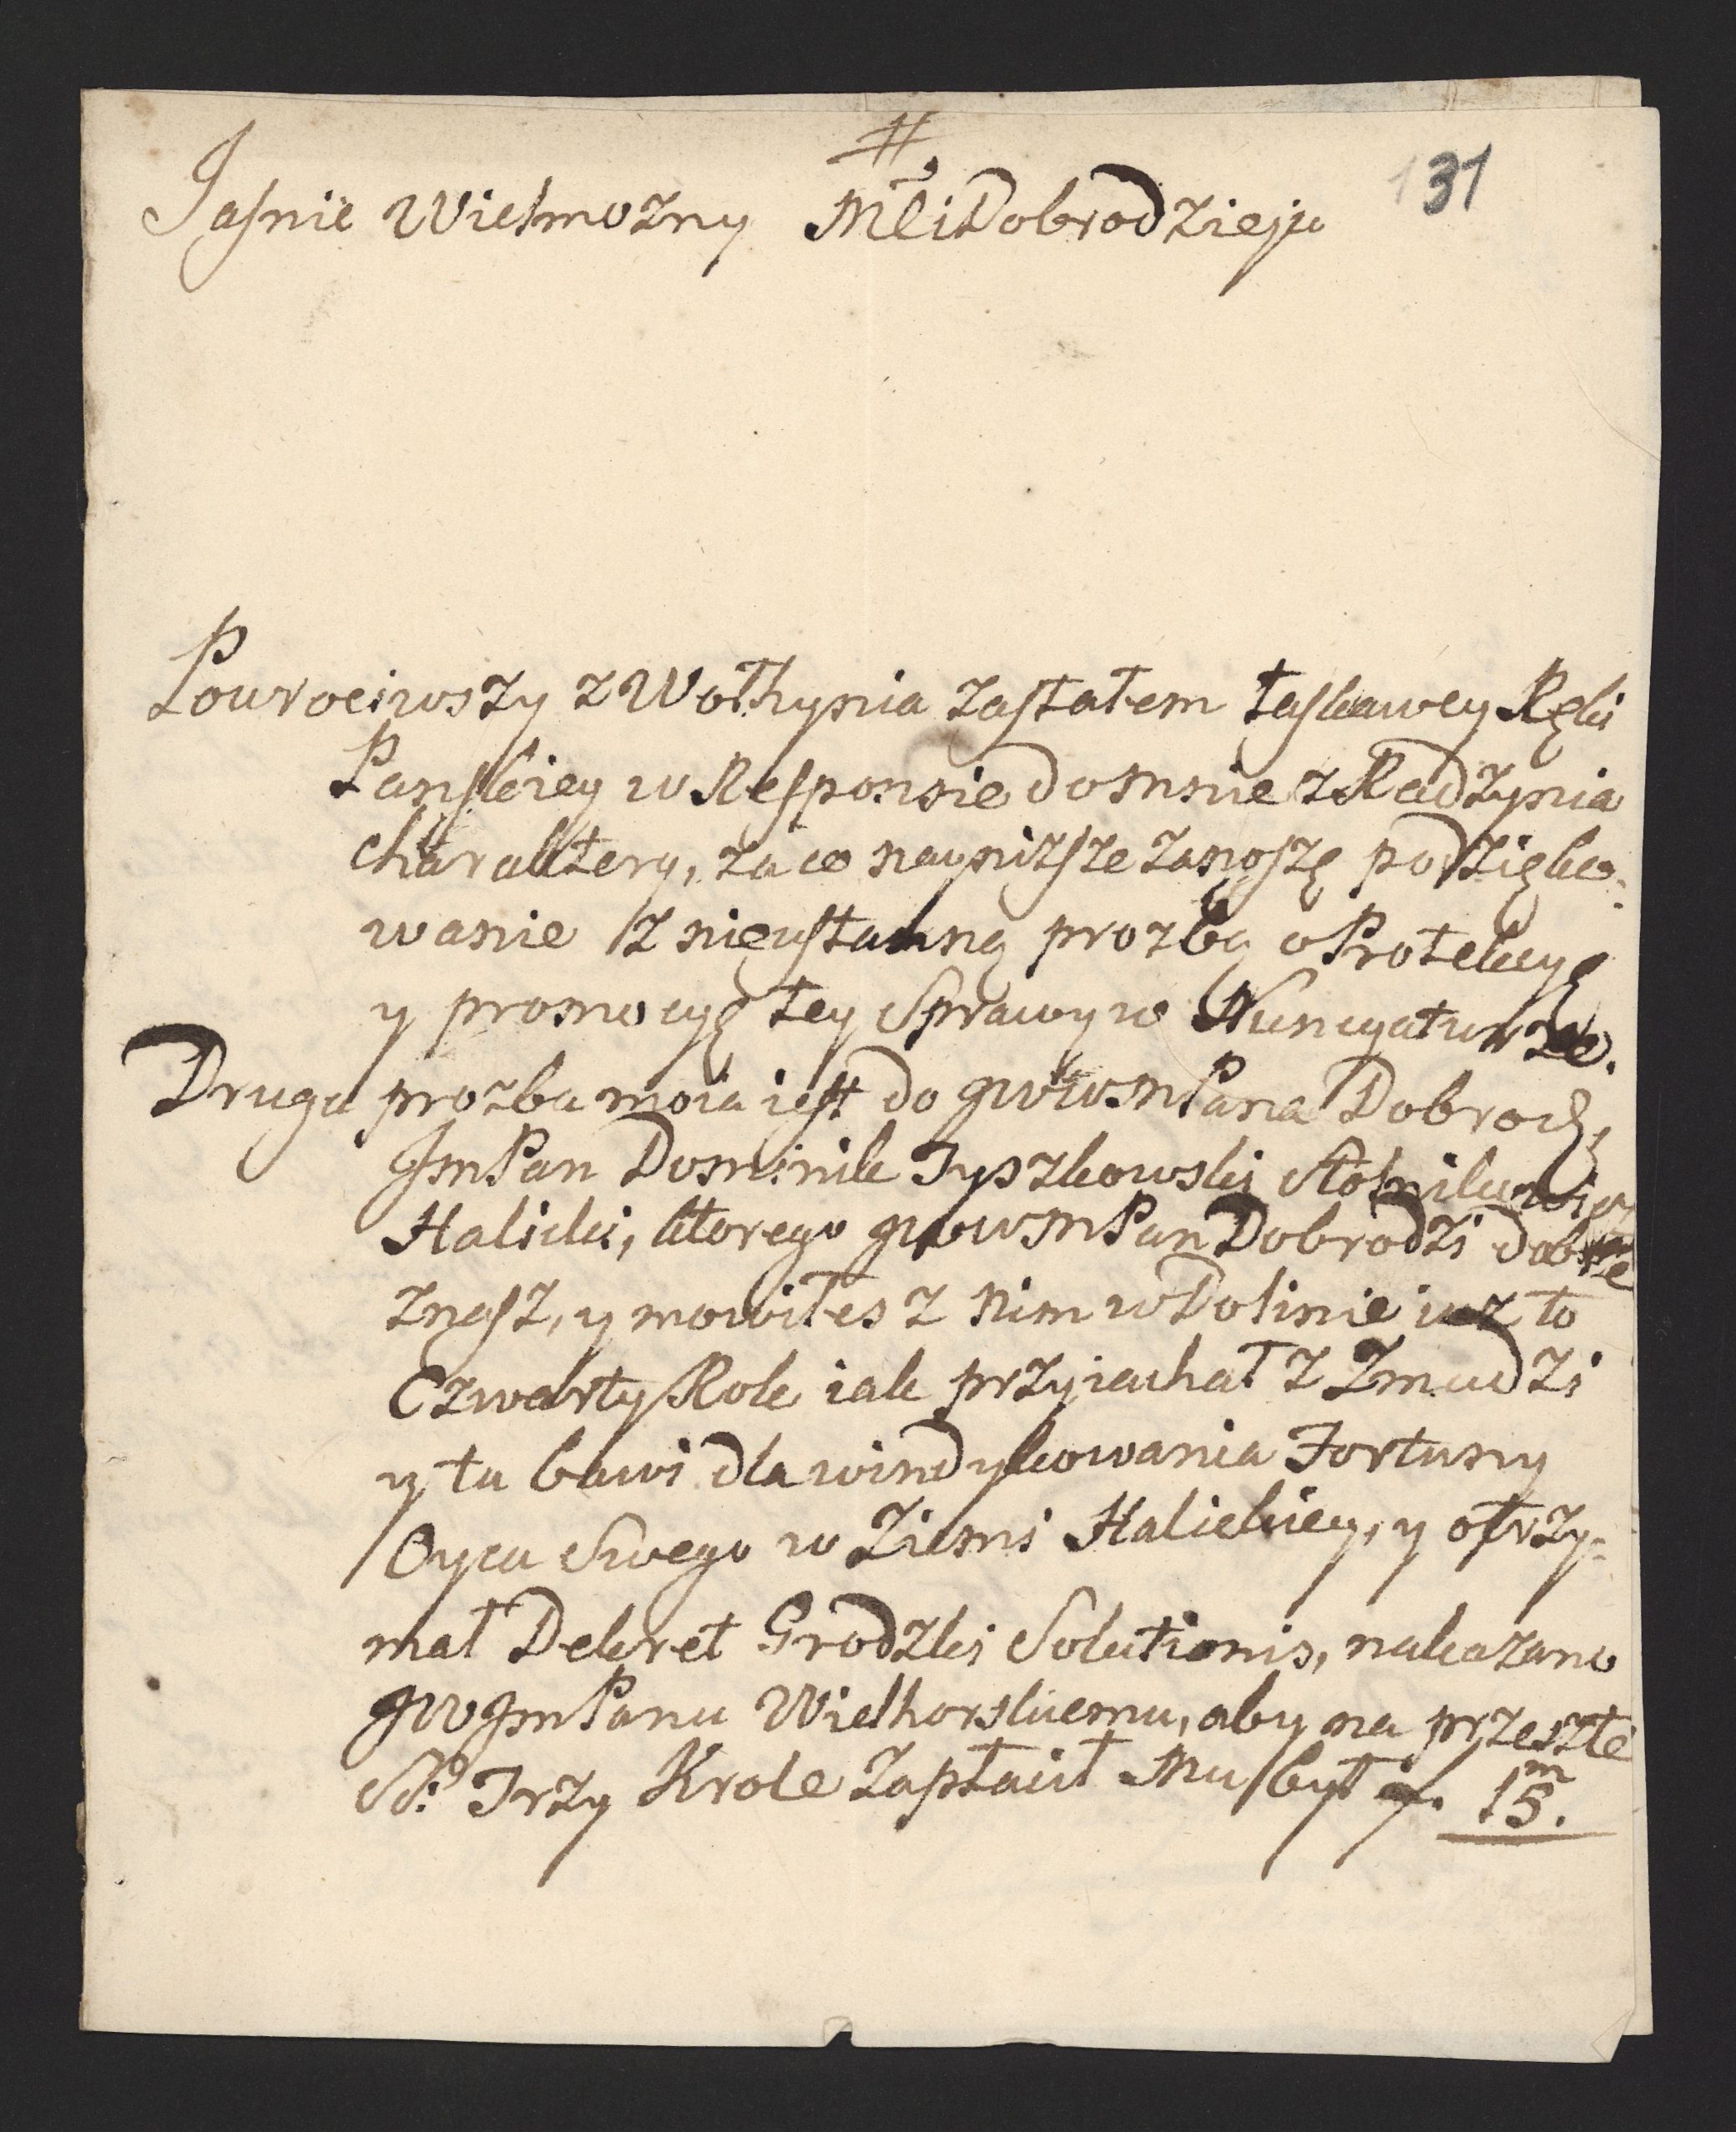 #
131
Jaśnie Wielmozny MCi Dobrodzieju
Powrociwszy z Wołhynia zastałem łaskawey Ręki
Panskiey w Responsie do mnie z Radzynia
charaktery, za co nayniższe zanoszę podzięko=
wanie z nieustanną prozbą o Protekcyę
y promocyę tey Sprawy w Nuncyaturze.
Druga prozba moia iest do JWWMPana Dobrodz,
JmPan Dominik Tyszkowski Stolnikowicz
Halicki, ktorego JWWMPan Dobrodzi dobrze
znasz, y mowiłes z nim w Dolinie iuz to
Czwarty Rok iak przyiachał z Zmudzi
y tu bawi dla windykowania Fortuny
Oyca Swego w Ziemi Halickiey, y otrzy=
mał Dekret Grodzki Solutionis, nakazano
JWJmPanu Wielhorskiemu, aby na przeszłe
SS. Trzy Krole zapłacił Mu był f. 15.m